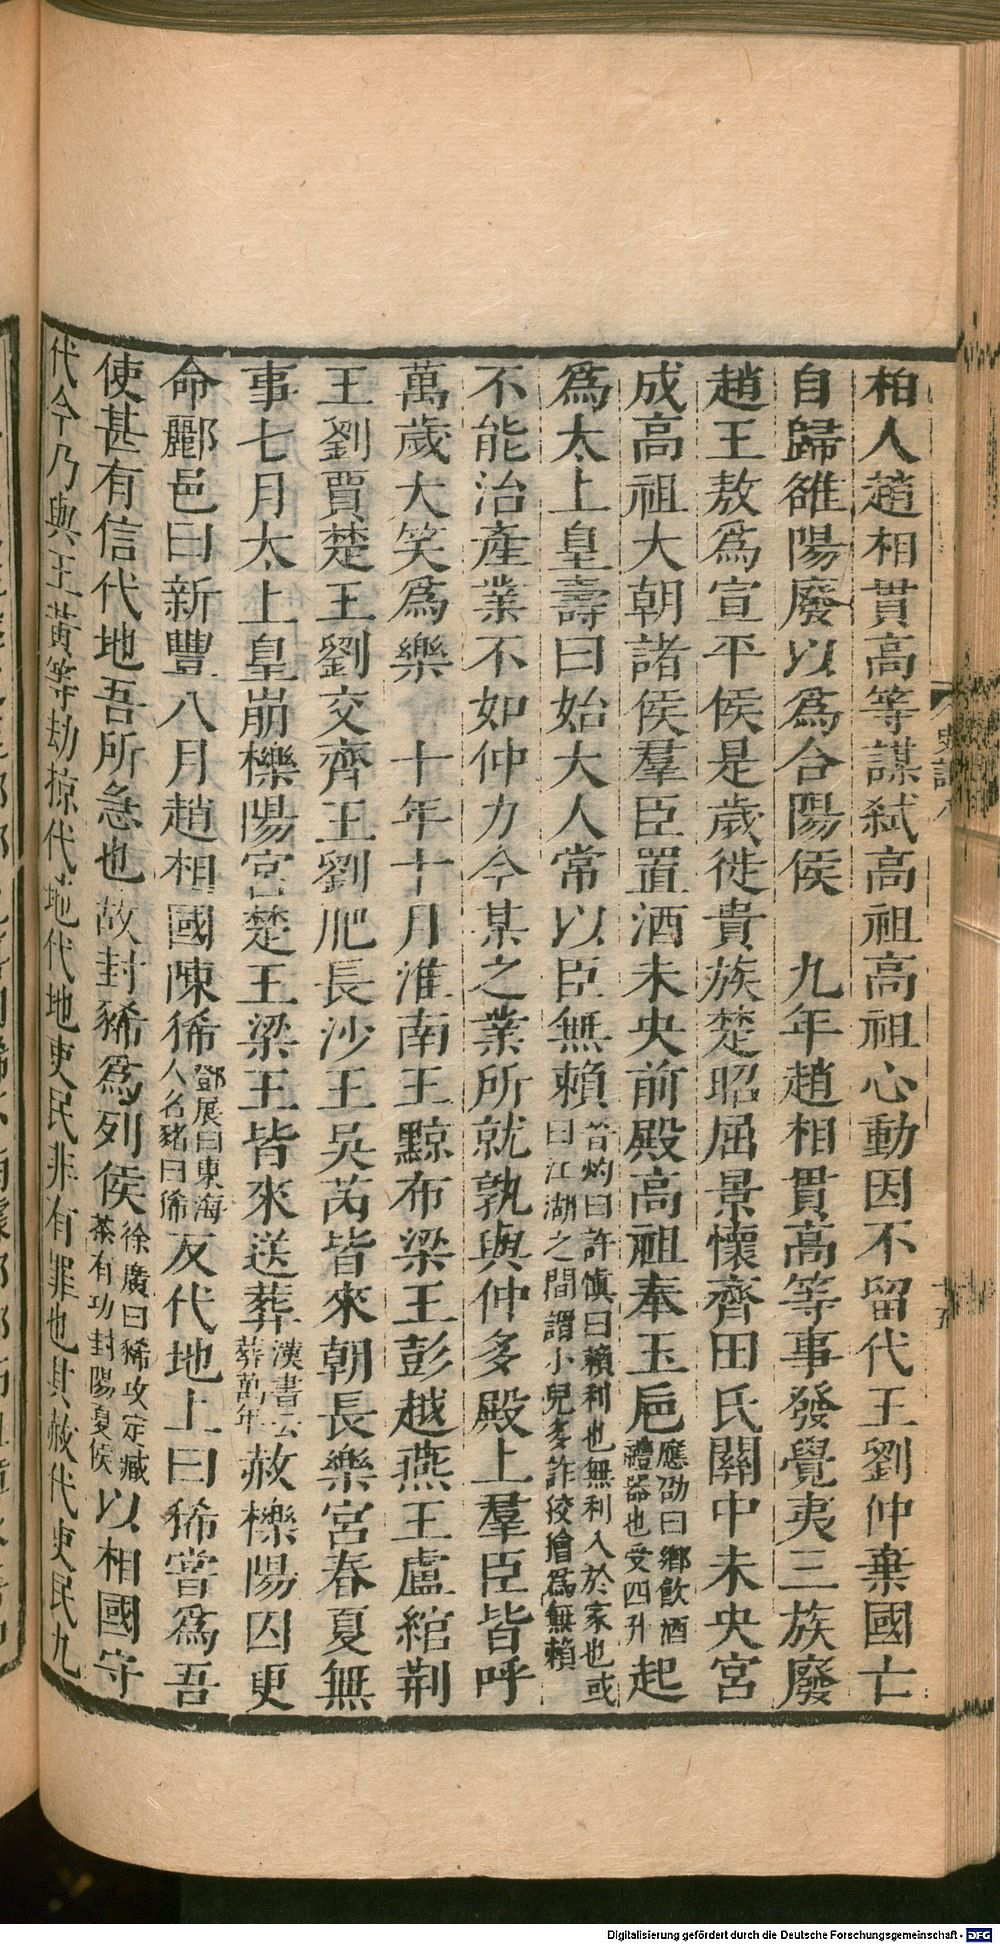 柏人趙相貫高等謀弑高祖高祖心動因不留代王劉仲棄國亡
自歸雒陽廢以為合陽侯　九年趙相貫高等事發覺夷三族廢
趙王敖為宣平侯是歲徙貴族楚昭屈景懷齊田氏關中未央宮
成高祖大朝諸侯羣臣置酒未央前殿高祖奉玉巵應劭曰鄉飲酒禮器也受四升起
為太上皇壽曰始大人常以臣無賴晉灼曰許慎曰賴利也無利入於家也或曰江湖之間謂小兒多詐狡獪為無賴
不能治產業不如仲力今某之業所就孰與仲多殿上羣臣皆呼
萬歲大笑為樂　十年十月淮南王黥布梁王彭越燕王盧綰荆
王劉賈楚王劉交齊王劉肥長沙王吳芮皆來朝長樂宮春夏無
事七月太上皇崩櫟陽宮楚王梁王皆來送葬漢書云葬萬年赦櫟陽囚更
命酈邑曰新豐八月趙相國陳豨鄧展曰東海人名豬曰豨反代地上曰豨嘗為吾
使甚有信代地吾所急也故封豨為列侯徐廣曰豨攻定臧荼有功封陽夏侯以相國守
代今乃與王黃等劫掠代地代地吏民非有罪也其赦代吏民九
史記八
Digitalisierung gefördert durch die Deutsche Forschungsgemeinschaft - DFG